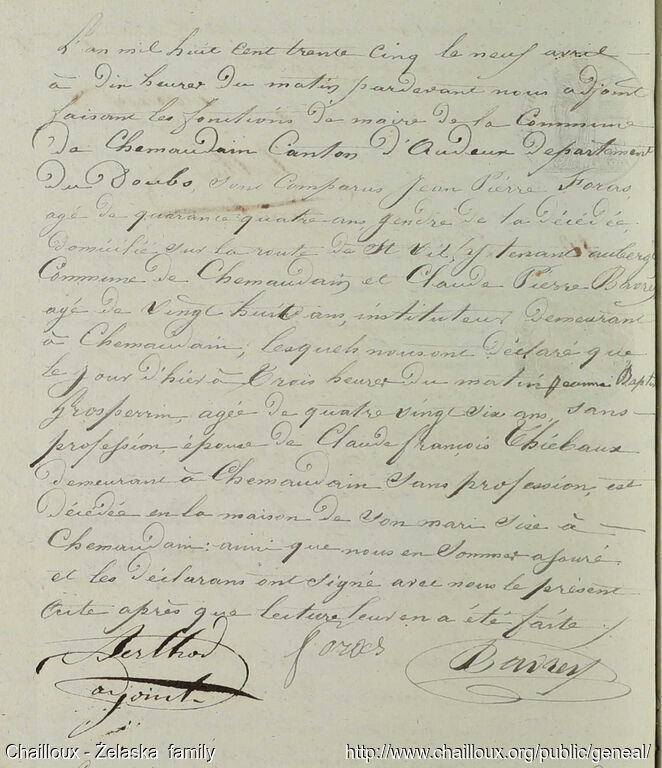 L'an mil huit cent trente cinq le neuf avril
à dix heures du matin pardevant nous adjoint
faisant les fonctions de maire de la Commune
de Chemaudain Canton d'Audeux Departement
du Doubs, sont comparus Jean Pierre Foros,
agé de quarante quatre ans, gendre de la décédée,
domicilié sur la route de St Vit, y tenant auberge
Commune de Chemaudain, et Claude Pierre Bavrey
agé de vingt huit ans, instituteur demeurant
à Chemaudain; lesquels nous ont déclaré que
le jour d'hier à trois heures du matin Jeanne Bapt
Grosperrin, agée de quatre vingt six ans, sans
profession, épouse de Claude françois Thiebaux
demeurant à Chemaudain sans profession, est
décédée en la maison de son mari sise à
Chemaudain: ainsi que nous en sommes assuré
et les déclarans ont signé avec nous le présent
acte après que lecture leur en a été faite ./.
Berthod foros Bavrey
adjoint
Chailloux - Żelaska family http://www.chailloux.org/public/geneal/